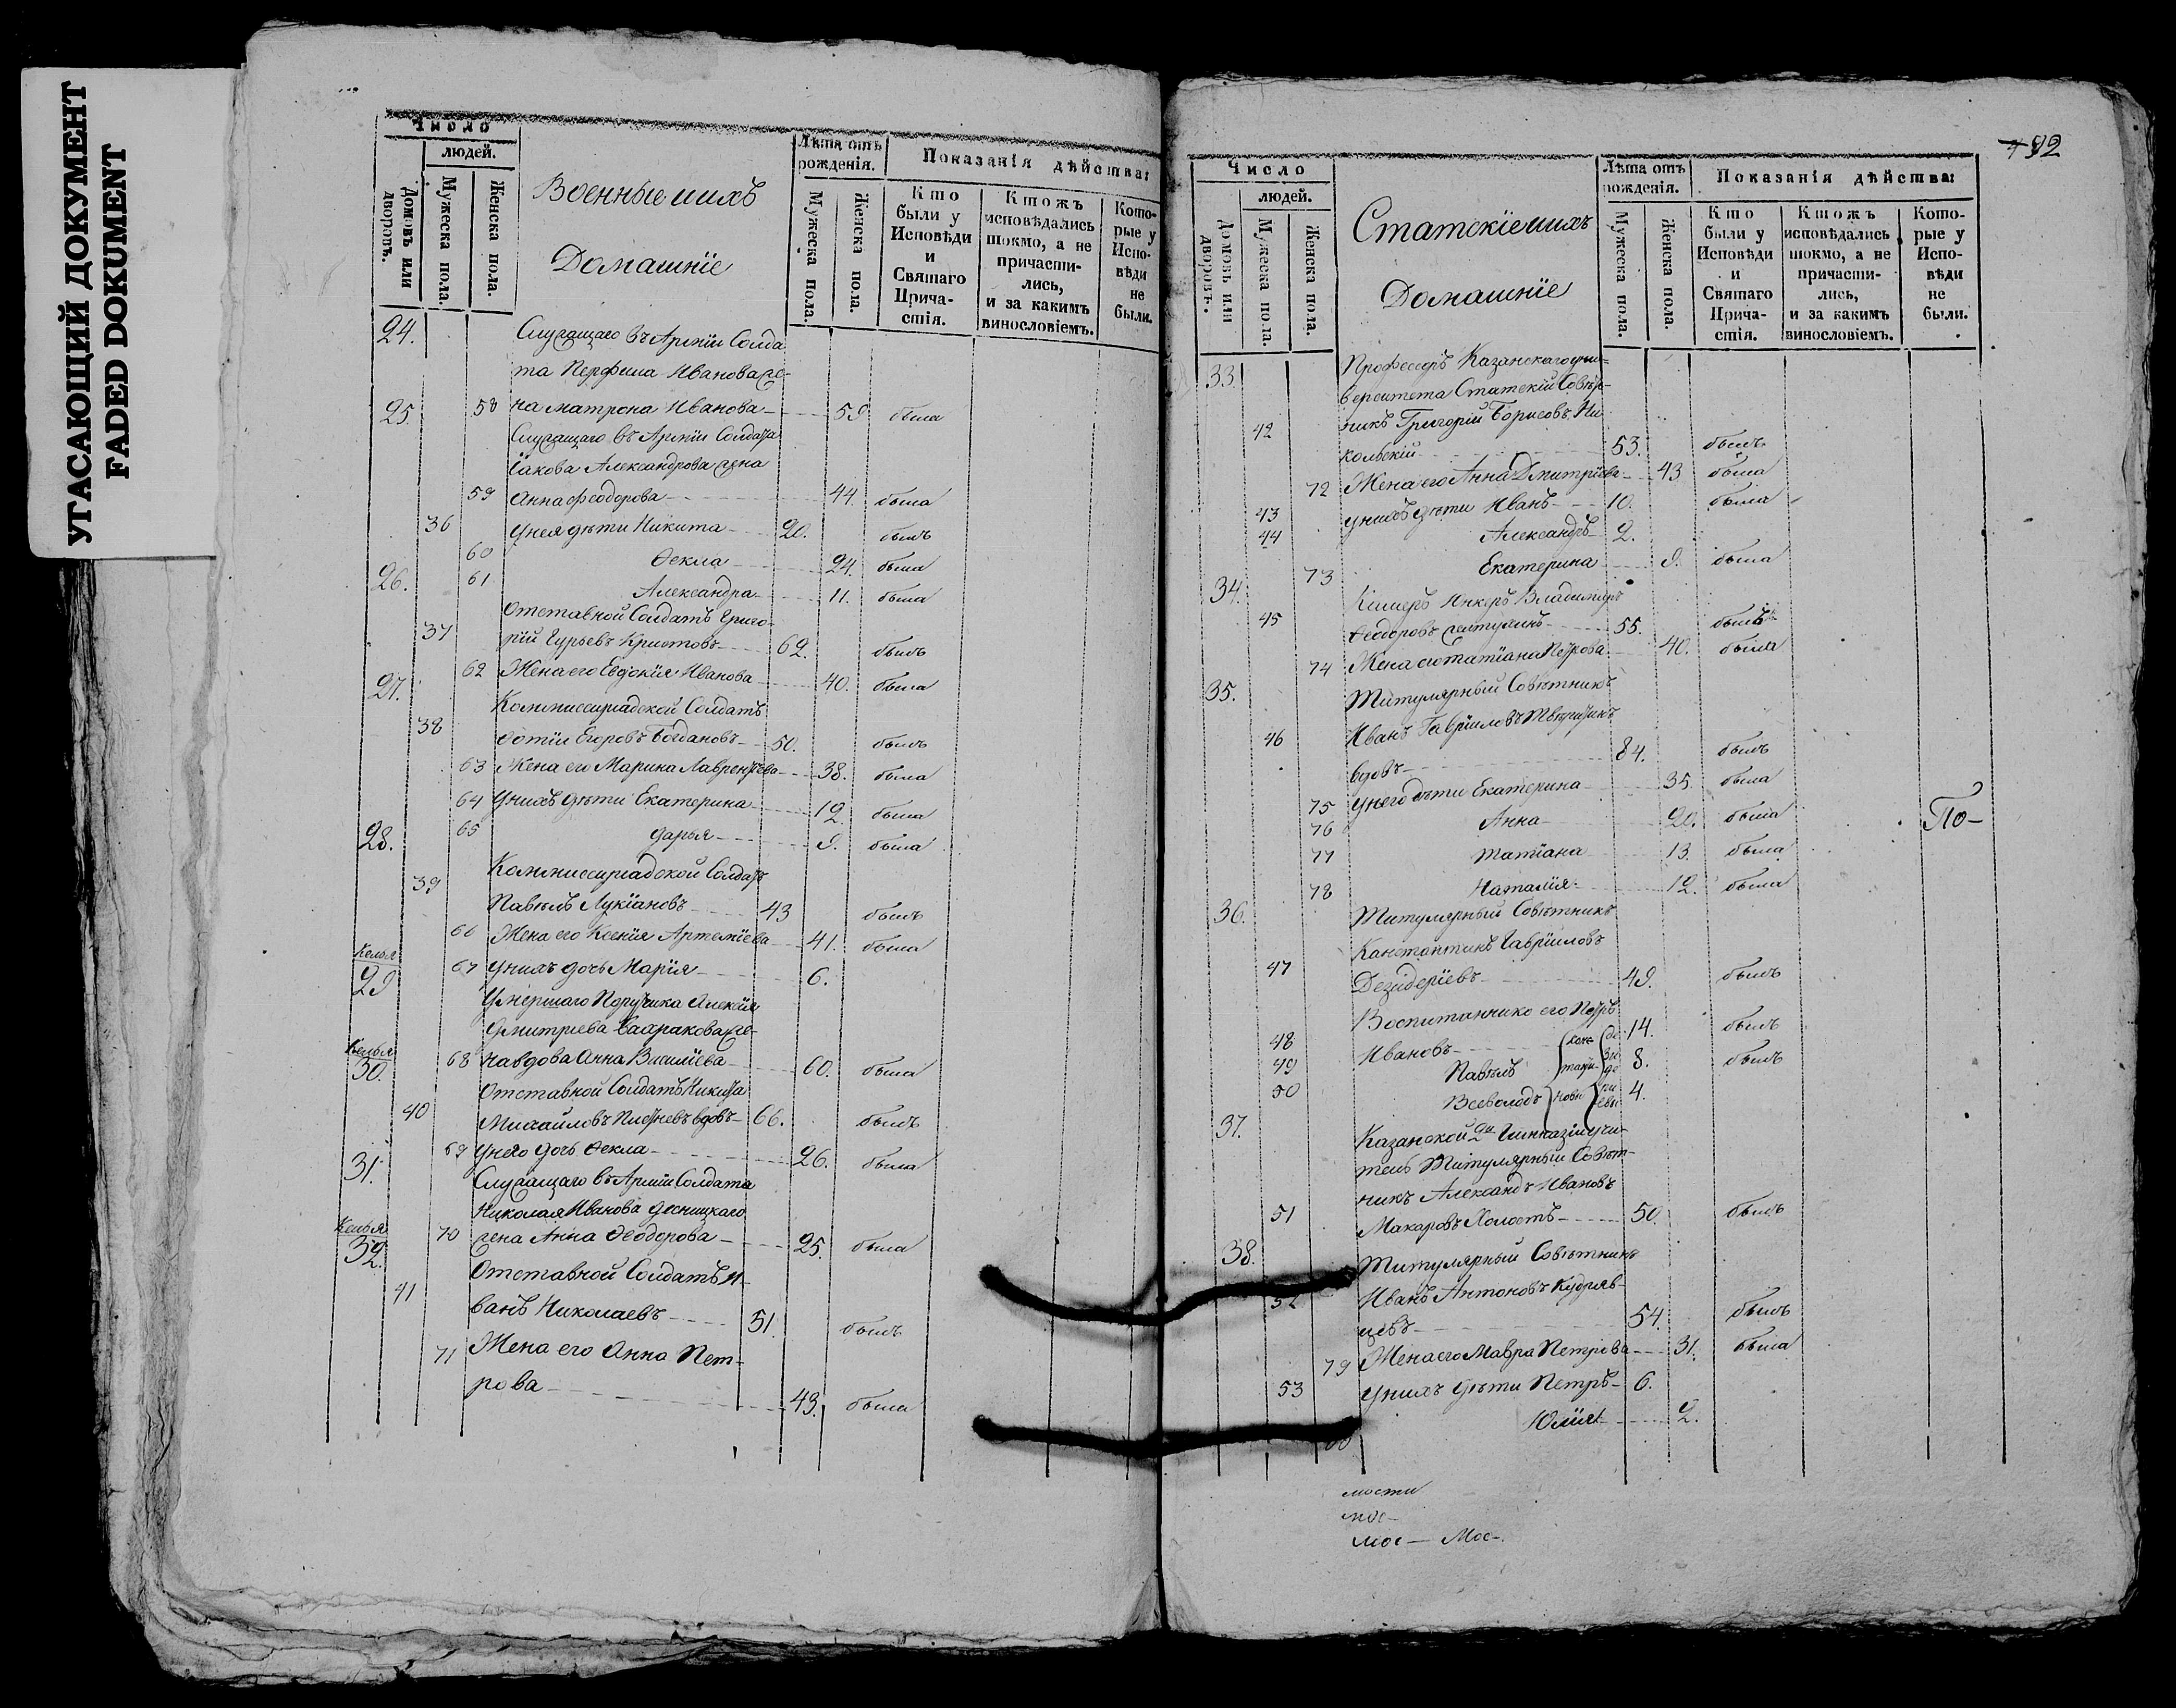 УГАСАЮЩИЙ ДОКУМЕНТ
FADED DOKUMENT
Число
людей.
Домовъ или дворовъ.
Мужеска пола.
Женска пола.
Военные и ихъ
Домашніе
Лѣта отъ рожденія.
Мужеска пола.
Женска пола.
Показанія дѣйства:
Кто были у Исповѣди и Святаго Прича-стія.
Ктожъ исповѣдались токмо, а не причасти-лись, и за какимъ винословіемъ.
Кото-рые у Испо-вѣди не были.
24. Служащаго въ Арміи Солда
та Перфила Иванова же-
58 на матрона Иванова 59 была
25. Служащаго въ Арміи Солдата
Іакова Александрова жена
59 Анна Феодорова 44. была
36 У нея дѣти Никита 20. былъ
60 Ѳекла 24. была
61 Александра 11. была
26. Отставной Солдатъ Григо-
37 рій Гурьевъ 62. былъ
62 Жена его Евдокія Иванова 40. была
27. Коммиссиріадской Солдатъ
38 Фотіи Егоровъ Богдановъ 50. былъ
63 Жена его Марина Лаврентьева 38. была
64 У нихъ дѣти Екатерина 12. была
65 дарья 9. была
28. Коммиссиріадской Солдатъ
39 Павелъ Лукіановъ 43 былъ
66 Жена его Ксенія Артеміева 41. была
67 У нихъ дочь Марія 6.
Келья
29 Умершаго Поручика Алексія
Дмитріева же-
68 на вдова Анна Василіева 60. была
Келья
30. Отставной Солдатъ Никита
40 Михайловъ вдовъ 66. былъ
69 У него дочь Ѳекла 26. была
31. Служащаго въ Арміи Солдата
Николая Иванова Десницкаго
70 жена Анна Ѳеодорова 25. была
Келья
32. Отставной Солдатъ И-
41 ванъ Николаевъ 51. былъ
71 Жена его Анна Пет-
рова 43. была
492
Число
людей.
Домовъ или дворовъ.
Мужеска пола.
Женска пола.
Статскіе и ихъ
Домашніе
Лѣта отъ рожденія.
Мужеска пола.
Женска пола.
Показанія дѣйства:
Кто были у Исповѣди и Святаго Прича-стія.
Ктожъ исповѣдались токмо, а не причасти-лись, и за какимъ винословіемъ.
Кото-рые у Испо-вѣди не были.
33. Профессоръ Казанскаго уни-
верситета Статскій Совѣт-
42 никъ Григорій Борисовъ Ни
кольскій 53. былъ
72 Жена его Анна Дмитріева 43 была
43 У нихъ дѣти Иванъ 10. была
44 Александръ 2.
73 Екатерина 9. была
34. Юнкеръ Владимиръ
45 Ѳеодоровъ 55. былъ
74 Жена его татіана Петрова 40. была
35. Титулярный Совѣтникъ
46 Иванъ Гавріиловъ
вдовъ 84. былъ
75 У него дѣти Екатерина 35. была
76 Анна 20. была
77 татіана 13. была
78 Наталія 12. была
По-
36. Титулярный Совѣтникъ
Констонтинъ Гавріиловъ
47 Дезидеріевъ 49. былъ
Воспитанники его Петръ
48 Ивановъ 14. былъ
49 Павелъ 8. былъ
50 Всеволодъ 4.
37. Казанской 2й Гимназіи учи-
тель Титулярный Совѣт-
никъ Александръ Ивановъ
51 Макаровъ Холостъ 50. былъ
38. Титулярный Совѣтникъ
52 Иванъ Антоновъ Кудряв-
цевъ 54. былъ
79 Жена его Мавра Петрова 31. была
53 У нихъ дѣти Петръ 6.
Юлія 2.
мости
мос-
мос- Мос-